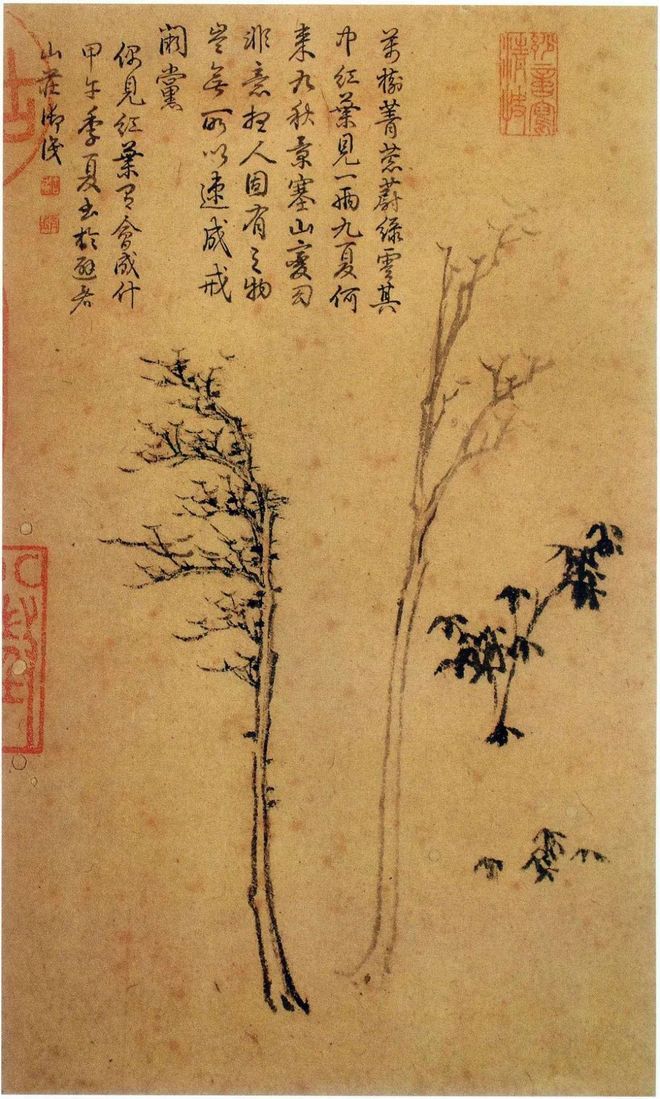 萬樹菁葱蔚綠雲其
中紅葉見一兩九夏何
來九秋景塞山
非意想人固有之物
豈無所以速成戒
闕黨
偶見紅葉有會成什
甲午季夏書於避暑
山莊御識